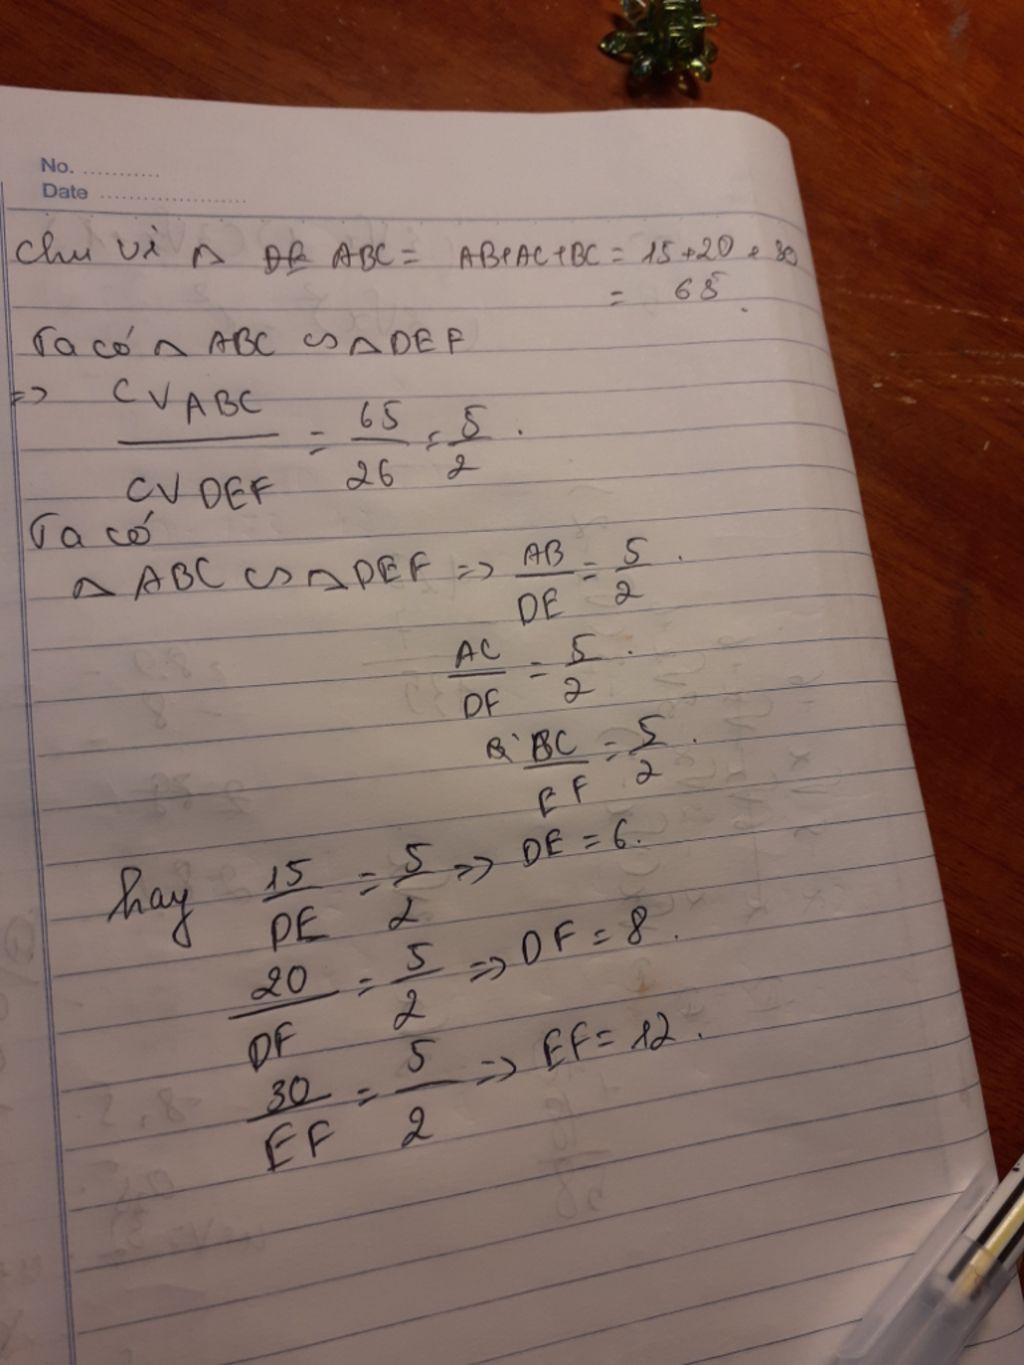 No. ...........
Date ......................
Chu vi △ ABC = AB+AC+BC = 15+20+30
= 65.
Ta có △ ABC ∽ △ DEF
=> CV ABC / CV DEF = 65/26 = 5/2.
Ta có
△ ABC ∽ △ DEF => AB/DE = 5/2.
AC/DF = 5/2.
BC/EF = 5/2.
hay 15/DE = 5/2 => DE = 6.
20/DF = 5/2 => DF = 8.
30/EF = 5/2 => EF = 12.